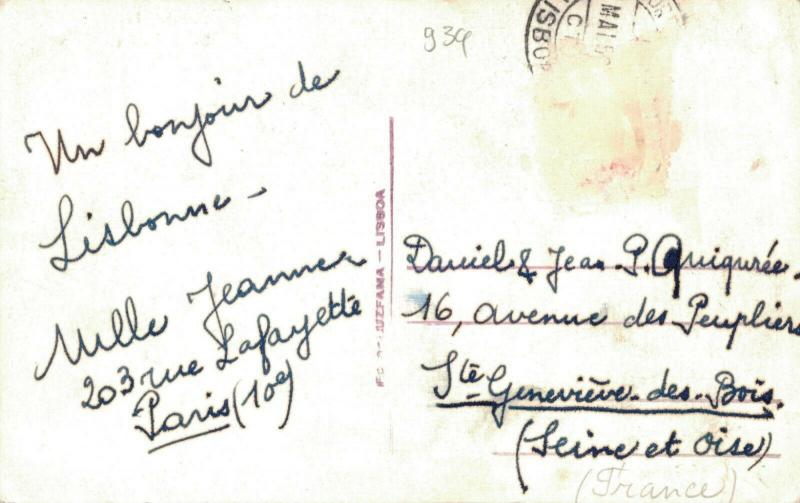 939
Un bonjour de
Lisbonne -
Mlle Jeanne
203 rue Lafayette
Paris (10e)
LUZFAMA — LISBOA
MAI
Daniel & Jean P.
16, avenue des Peupliers
Ste Geneviève-des-Bois.
(Seine et Oise)
(France)